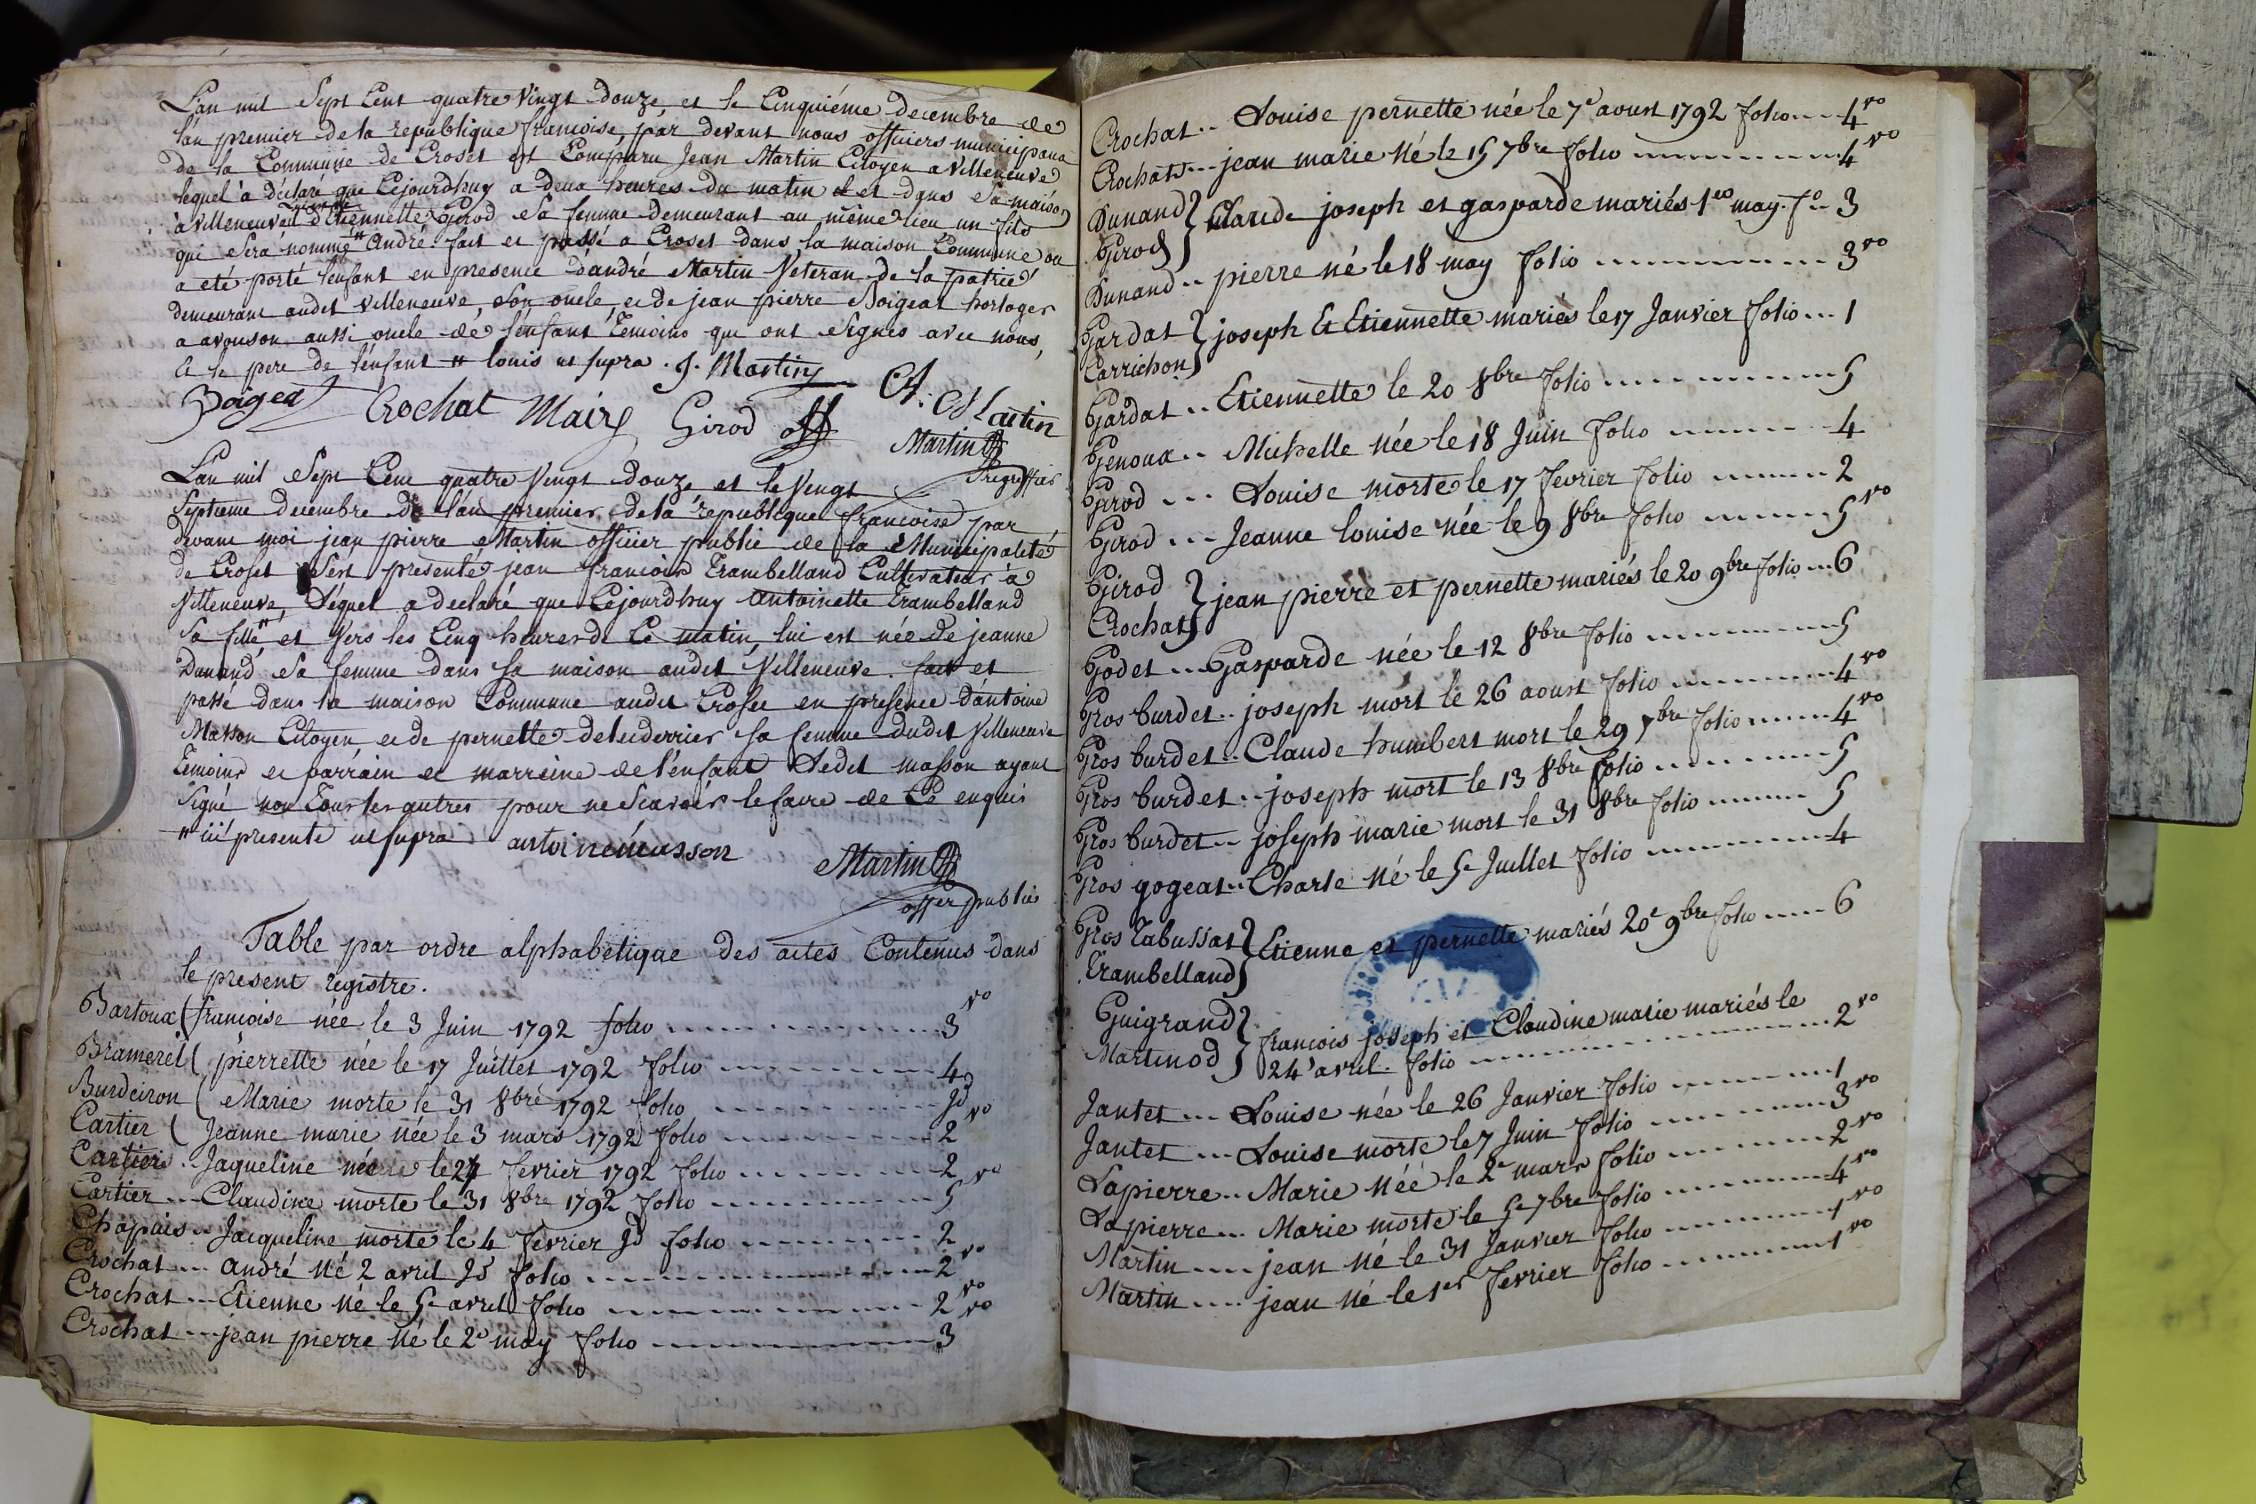 L'an mil Sept Cent quatre Vingt Douze, et le Cinquiéme decembre de
l'an premier de la republique françoise, par devant nous officiers municipaux
de la Commune de Croset est Comparu Jean Martin Citoyen a Villeneuve
lequel à déclaré que Cejourdhuy a deux heures du matin et dans sa maison
à Villeneuve d'Etiennette Girod sa femme demeurant au même lieu un fils
qui sera nommé " André fait et passé a Croset dans la maison Commune ou
a eté porté l'enfant en presence d'andré Martin Veteran de la patrie
demeurant audit Villeneuve son oncle et de jean pierre Boigeat horloger
a avouson aussi oncle de l'enfant Temoins qui ont signés avec nous,
et le pere de l'enfant " louis ut supra . J. Martin
Boigeat Crochat Maire Girod off A. Martin
Martin
S.greffier
L'an mil Sept Cent quatre Vingt Douze et le Vingt
Septieme decembre de l'an premier de la republique françoise par
devant moi jean pierre Martin officier public de la Municipalité
de Croset s'est presenté jean françois Trambelland Cultivateur à
Villeneuve, Lequel a declaré que Cejourdhuy antoinette Trambelland
sa fille " et Vers les Cinq heures de Ce matin, lui est née de jeanne
Dunand sa femme dans sa maison audit Villeneuve. fait et
passé dans la maison Commune audit Croset en presence d'antoine
Masson Citoyen et de pernette sa femme dudit Villeneuve
Temoins et parrain et marreine de l'enfant Ledit masson ayant
signé non Tous les autres pour ne scavoir le faire de Ce enquis
" ici presente ut supra antoinemasson
Martin
offer public
Table par ordre alphabetique des actes Contenus dans
le present registre.
Bartoux ( françoise née le 3 Juin 1792 folio 3 vo
Brameret ( pierrette née le 17 Juillet 1792 folio 4
Burdeiron ( Marie morte le 31 8bre 1792 folio
Cartier ( Jeanne marie née le 3 mars 1792 folio 2 vo
Cartier .. Jaqueline née le 24 fevrier 1792 folio 2
Cartier ... Claudine morte le 31 8bre 1792 folio 5 vo
Chapuis .. Jacqueline morte le 4 fevrier jd folio 2
Crochat ... andré né 2 avril jd folio 2 vo
Crochat ... Etienne né le 5e avril folio 2 vo
Crochat ... jean pierre né le 2e may folio 3 vo
Crochat .. Louise pernette née le 7e aoust 1792 folio 4 vo
Crochat ... jean marie né le 15 7bre folio 4 vo
Dunand } Claude joseph et gasparde mariés 1er may fo 3
Girod
Dunand .. pierre né le 18 may folio 3 vo
Gardat } joseph Et Etiennette mariés le 17 Janvier folio ... 1
Carrichon
Gardat .. Etiennette le 20 8bre folio 5
Genoux .. Michelle née le 18 Juin folio 4
Girod ... Louise morte le 17 fevrier folio 2
Girod ... Jeanne louise née le 9 8bre folio 5 vo
Girod } jean pierre et pernette mariés le 20 9bre folio ... 6
Crochat
Godet ... Gasparde née le 12 8bre folio 5
Gros burdet .. joseph mort le 26 aoust folio 4 vo
Gros burdet .. Claude humbert mort le 29 7bre folio 4 vo
Gros burdet .. joseph mort le 13 8bre folio 5
Gros burdet .. joseph marie mort le 31 8bre folio 5
Gros gogeat .. Charle né le 5e Juillet folio 4
Gros Tabussat } Etienne et pernette mariés 20e 9bre folio 6
Trambelland
Guigrand } francois joseph et Claudine marie mariés le
Martinod 24e avril. folio 2 vo
Jantet ... Louise née le 26 Janvier folio 1
Jantet ... Louise morte le 7 Juin folio 3 vo
Lapierre .. Marie née le 2e mars folio 2 vo
Lapierre ... Marie morte le 5e 7bre folio 4 vo
Martin .... jean né le 31 Janvier folio 1 vo
Martin .... jean né le 1er fevrier folio 1 vo